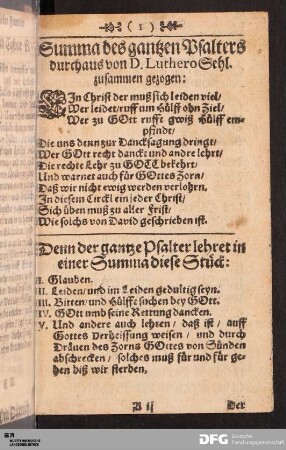 ( 1 )
Summa des gantzen Psalters
durchaus von D. Luthero Sehl.
zusammen gezogen:
EIn Christ der muß sich leiden viel/
Wer leidet/ ruff um Hülff ohn Ziel/
Wer zu GOtt rufft gwiß Hülff em-
pfindt/
Die uns denn zur Dancksagung dringt/
Wer GOtt recht danckt und andre lehrt/
Die rechte Lehr zu GOTT bekehrt/
Und warnet auch für GOttes Zorn/
Daß wir nicht ewig werden verlohrn.
In diesem Circkl ein jeder Christ/
Sich üben muß zu aller Frist/
Wie solchs von David geschrieben ist.
Denn der gantze Psalter lehret in
einer Summa diese Stück:
I. Glauben.
II. Leiden/ und im Leiden gedultig seyn.
III. Bitten/ und Hülffe suchen bey GOtt.
IV. GOtt umb seine Rettung dancken.
V. Und andere auch lehren/ daß ist/ auff
Gottes Verheissung weisen/ und durch
Dräuen des Zorns GOttes von Sünden
abschrecken/ solches muß für und für ge-
hen biß wir sterben.
A ij
Der
DFG
Deutsche
Forschungsgemeinschaft